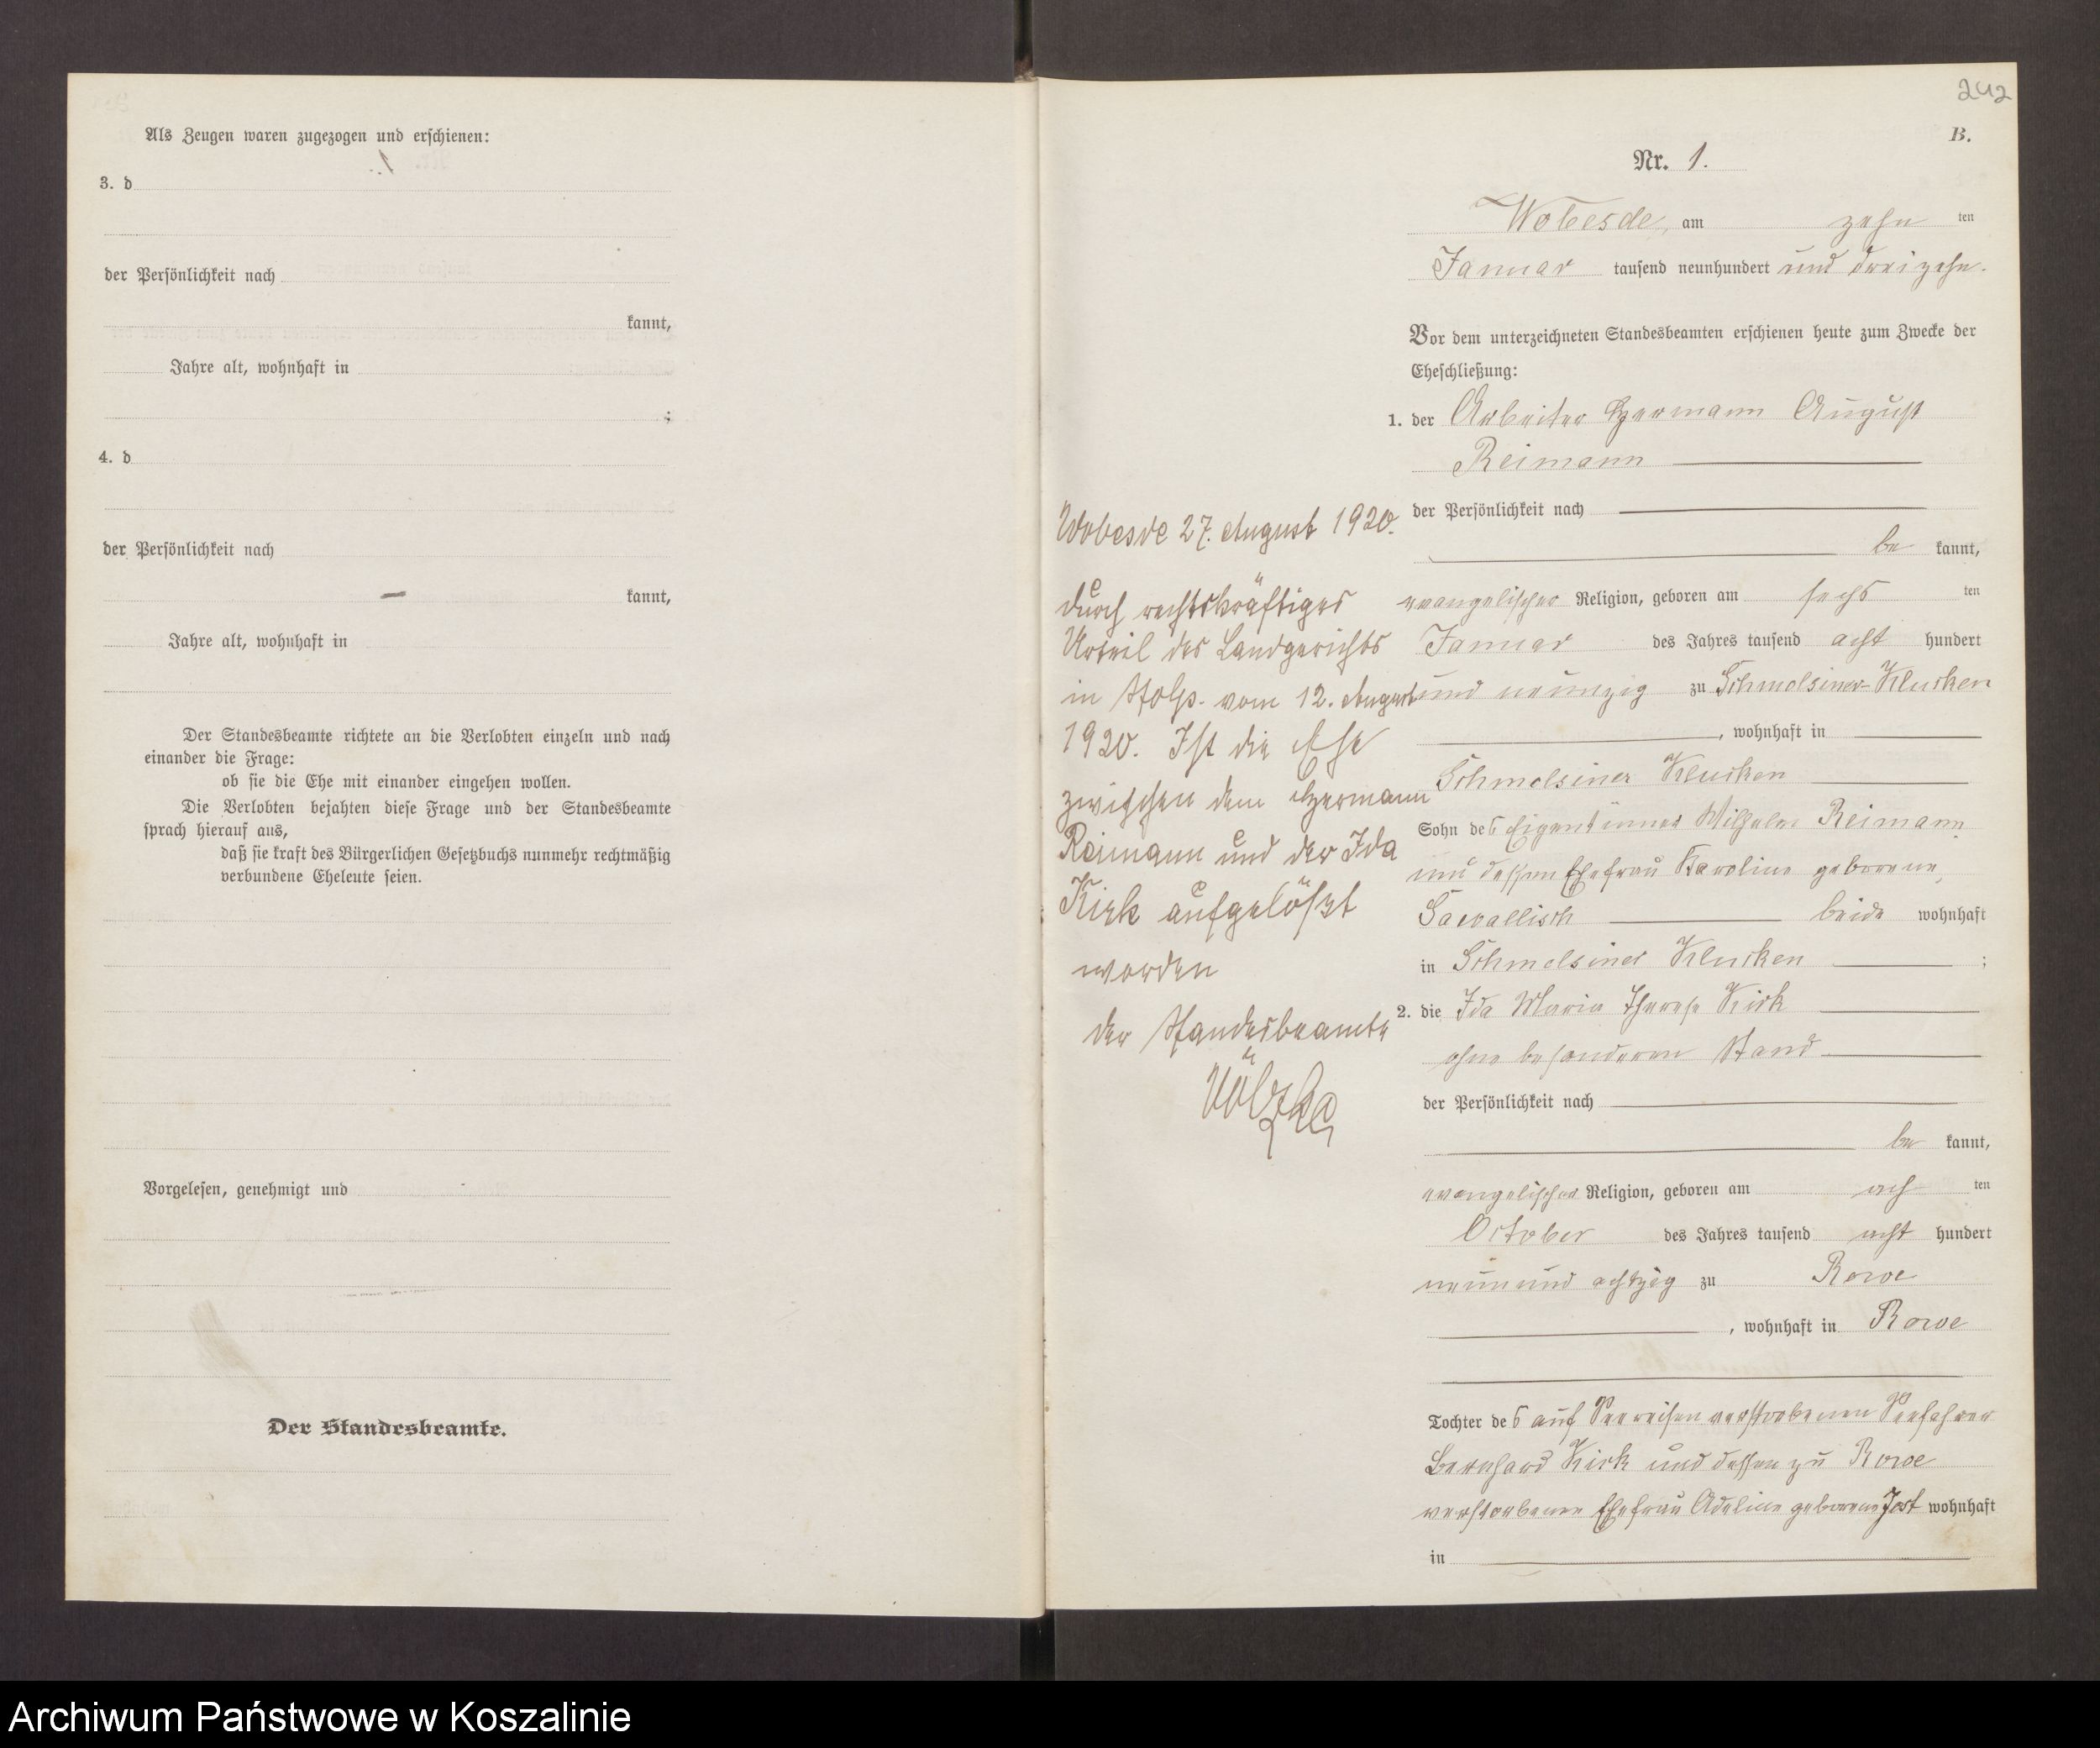 Als Zeugen waren zugezogen und erschienen:
3. d
der Persönlichkeit nach
kannt,
Jahre alt, wohnhaft in
;
4. d
der Persönlichkeit nach
kannt,
Jahre alt, wohnhaft in
Der Standesbeamte richtete an die Verlobten einzeln und nach
einander die Frage:
ob sie die Ehe mit einander eingehen wollen.
Die Verlobten bejahten diese Frage und der Standesbeamte
sprach hierauf aus,
daß sie kraft des Bürgerlichen Gesetzbuchs nunmehr rechtmäßig
verbundene Eheleute seien.
Vorgelesen, genehmigt und
Der Standesbeamte.
242
B.
Nr. 1.
Wobesde, am zehn ten
Januar tausend neunhundert und dreizehn.
Vor dem unterzeichneten Standesbeamten erschienen heute zum Zwecke der
Eheschließung:
1. der Arbeiter Hermann August
Reimann
der Persönlichkeit nach
be kannt,
evangelischer Religion, geboren am sechs ten
Januar des Jahres tausend acht hundert
und neunzig zu Schmolsiner-Klucken
, wohnhaft in
Schmolsiner Klucken
Sohn des Eigentümers Wilhelm Reimann
und dessen Ehefrau Karoline geborene,
Sawallisch beide wohnhaft
in Schmolsiner Klucken ;
2. die Ida Maria Therese Kirk
ohne besonderen Stand
der Persönlichkeit nach
be kannt,
evangelischer Religion, geboren am ach ten
October des Jahres tausend acht hundert
neun und achtzig zu Rowe
, wohnhaft in Rowe
Tochter des auf Seereisen verstorbenen Seefahrer
Bernhard Kirk und dessen zu Rowe
verstorbenen Ehefrau Adeline geborene Jost wohnhaft
in
Wobesde 27. August 1920.
durch rechtskräftiges
Urteil des Landgerichts
in Stolp. vom 12. August
1920. Ist die Ehe
zwischen dem Hermann
Reimann und der Ida
Kirk aufgelößt
worden
der Standesbeamte
Völzke
Archiwum Państwowe w Koszalinie